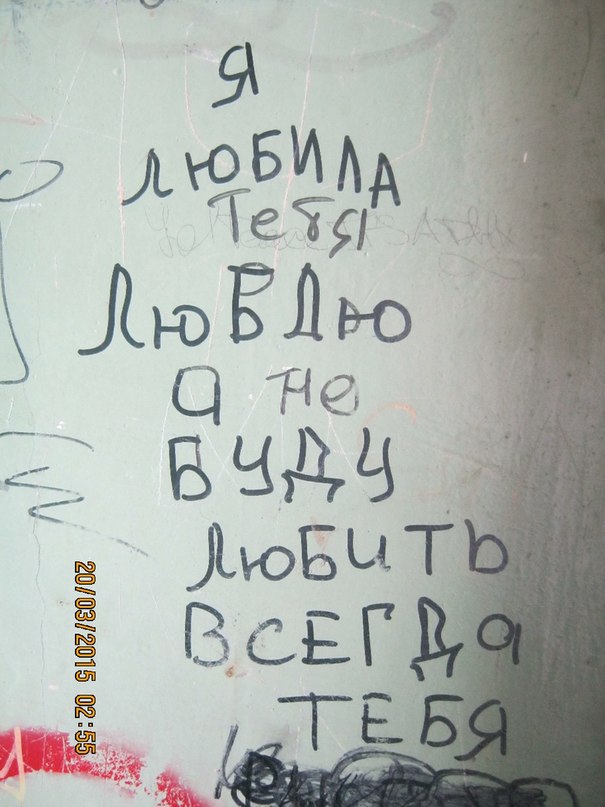 Я
ЛЮБИЛА
Тебя
ЛюБДю
а не
БУДУ
ЛюБиТЬ
ВСЕГДа
ТЕБЯ
20/03/2015 02:55